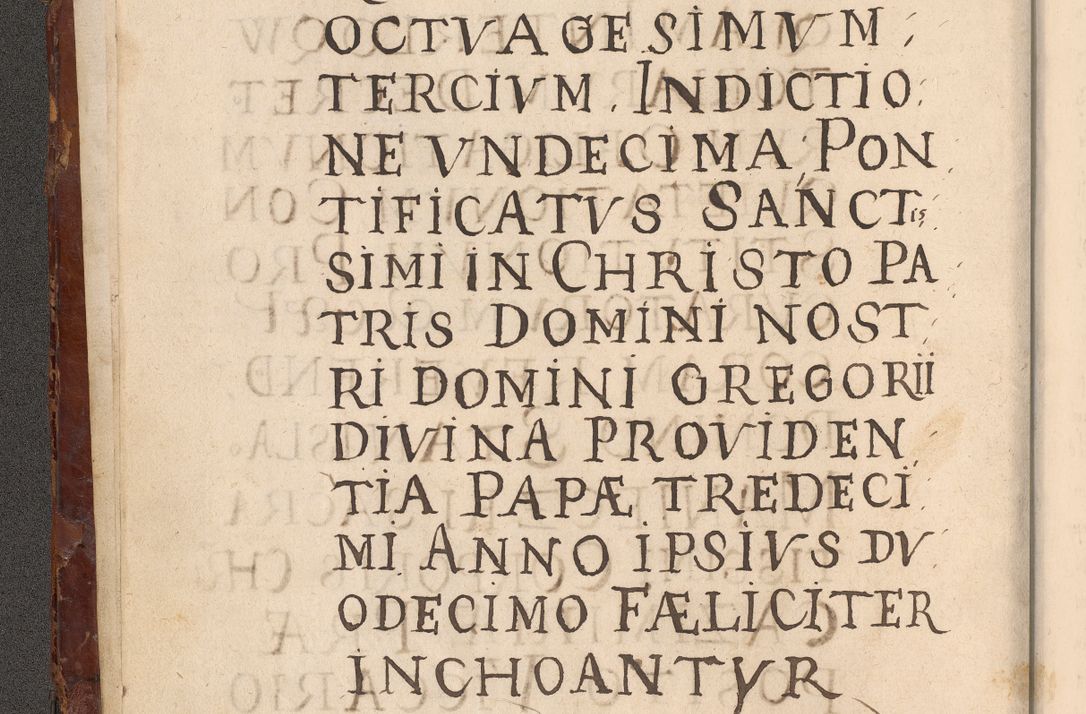 OCTVAGESIMVM
TERCIVM. INDICTIO
NE VNDECIMA, PON
TIFICATVS SANCTis,
SIMI IN CHRISTO PA
TRIS DOMINI NOST
RI DOMINI GREGORII
DIVINA PROVIDEN
TIA PAPÆ TREDECI
MI ANNO IPSIVS DV
ODECIMO FÆLICITER
INCHOANTVR